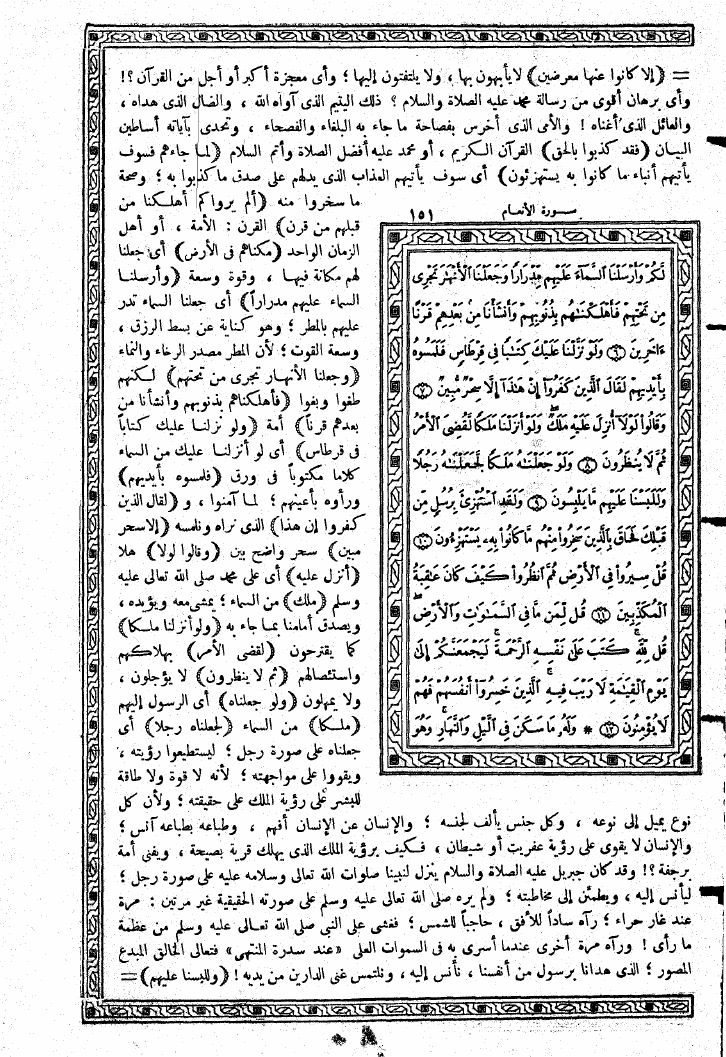 = (إلا كانوا عنها معرضين) لا يأبهون بها، ولا يلتفتون إليها؛ وأى معجزة أكبر أو أجل من القرآن؟!
وأى برهان أقوى من رسالة محمد عليه الصلاة والسلام؟ ذلك اليتيم الذى آواه الله، والضال الذى هداه،
والعائل الذى أغناه! والأمى الذى أخرس بفصاحة ما جاء به البلغاء والفصحاء، وتحدى بآياته أساطين
البيان (فقد كذبوا بالحق) القرآن الكريم، أو محمد عليه أفضل الصلاة وأتم السلام (لما جاءهم فسوف
يأتيهم أنباء ما كانوا به يستهزئون) أى سوف يأتيهم العذاب الذى يدلهم على صدق ما كذبوا به؛ وصحة
ما سخروا منه (ألم يروا كم أهلكنا من
قبلهم من قرن) القرن: الأمة، أو أهل
الزمان الواحد (مكناهم فى الأرض) أى جعلنا
لهم مكانة فيها، وقوة وسعة (وأرسلنا
السماء عليهم مدراراً) أى جعلنا السماء تدر
عليهم بالمطر؛ وهو كناية عن بسط الرزق،
وسعة القوت؛ لأن المطر مصدر الرخاء والنماء
(وجعلنا الأنهار تجرى من تحتهم) لكنهم
طغوا وبغوا (فأهلكناهم بذنوبهم وأنشأنا من
بعدهم قرناً) أمة (ولو نزلنا عليك كتاباً
فى قرطاس) أى لو أنزلنا عليك من السماء
كلاما مكتوباً فى ورق (فلمسوه بأيديهم)
ورأوه بأعينهم؛ لما آمنوا، و (لقال الذين
كفروا إن هذا) الذى نراه ونلمسه (إلا سحر
مبين) سحر واضح بين (وقالوا لولا) هلا
(أنزل عليه) أى على محمد صلى الله تعالى عليه
وسلم (ملك) من السماء؛ يمشى معه ويؤيده،
ويصدق أمامنا بما جاء به (ولو أنزلنا ملكا)
كما يقترحون (لقضى الأمر) بهلاكهم
واستئصالهم (ثم لا ينظرون) لا يؤجلون،
ولا يمهلون (ولو جعلناه) أى الرسول إليهم
(ملكا) من السماء (لجعلناه رجلا) أى
جعلناه على صورة رجل؛ ليستطيعوا رؤيته،
ويقووا على مواجهته؛ لأنه لا قوة ولا طاقة
للبشر على رؤية الملك على حقيقته؛ ولأن كل
سورة الأنعام ١٥١
لَّكُمْ وَأَرْسَلْنَا ٱلسَّمَآءَ عَلَيْهِم مِّدْرَارًا وَجَعَلْنَا ٱلْأَنْهَٰرَ تَجْرِى
مِن تَحْتِهِمْ فَأَهْلَكْنَٰهُم بِذُنُوبِهِمْ وَأَنشَأْنَا مِنۢ بَعْدِهِمْ قَرْنًا
ءَاخَرِينَ ٦ وَلَوْ نَزَّلْنَا عَلَيْكَ كِتَٰبًا فِى قِرْطَاسٍ فَلَمَسُوهُ
بِأَيْدِيهِمْ لَقَالَ ٱلَّذِينَ كَفَرُوٓا۟ إِنْ هَٰذَآ إِلَّا سِحْرٌ مُّبِينٌ ٧
وَقَالُوا۟ لَوْلَآ أُنزِلَ عَلَيْهِ مَلَكٌ ۖ وَلَوْ أَنزَلْنَا مَلَكًا لَّقُضِىَ ٱلْأَمْرُ
ثُمَّ لَا يُنظَرُونَ ٨ وَلَوْ جَعَلْنَٰهُ مَلَكًا لَّجَعَلْنَٰهُ رَجُلًا
وَلَلَبَسْنَا عَلَيْهِم مَّا يَلْبِسُونَ ٩ وَلَقَدِ ٱسْتُهْزِئَ بِرُسُلٍ مِّن
قَبْلِكَ فَحَاقَ بِٱلَّذِينَ سَخِرُوا۟ مِنْهُم مَّا كَانُوا۟ بِهِۦ يَسْتَهْزِءُونَ ١٠
قُلْ سِيرُوا۟ فِى ٱلْأَرْضِ ثُمَّ ٱنظُرُوا۟ كَيْفَ كَانَ عَٰقِبَةُ
ٱلْمُكَذِّبِينَ ١١ قُل لِّمَن مَّا فِى ٱلسَّمَٰوَٰتِ وَٱلْأَرْضِ ۖ
قُل لِّلَّهِ ۚ كَتَبَ عَلَىٰ نَفْسِهِ ٱلرَّحْمَةَ ۚ لَيَجْمَعَنَّكُمْ إِلَىٰ
يَوْمِ ٱلْقِيَٰمَةِ لَا رَيْبَ فِيهِ ۚ ٱلَّذِينَ خَسِرُوٓا۟ أَنفُسَهُمْ فَهُمْ
لَا يُؤْمِنُونَ ١٢ * وَلَهُۥ مَا سَكَنَ فِى ٱلَّيْلِ وَٱلنَّهَارِ ۚ وَهُوَ
نوع يميل إلى نوعه، وكل جنس يألف لجنسه؛ والإنسان عن الإنسان أفهم، وطباعه بطباعه آنس؛
والإنسان لا يقوى على رؤية عفريت أو شيطان، فكيف برؤية الملك الذى يهلك قرية بصيحة، ويفنى أمة
برجفة؟! وقد كان جبريل عليه الصلاة والسلام ينزل لنبينا صلوات الله تعالى وسلامه عليه على صورة رجل؛
ليأنس إليه، ويطمئن إلى مخاطبته؛ ولم يره صلى الله تعالى عليه وسلم على صورته الحقيقية غير مرتين: مرة
عند غار حراء؛ رآه ساداً للأفق، حاجباً للشمس؛ فغشى على النبى صلى الله تعالى عليه وسلم من عظمة
ما رأى! ورآه مرة أخرى عندما أسرى به فى السموات العلى «عند سدرة المنتهى» فتعالى الخالق المبدع
المصور؛ الذى هدانا برسول من أنفسنا، نأنس إليه، ونلتمس غنى الدارين من يديه! (وللبسنا عليهم) =